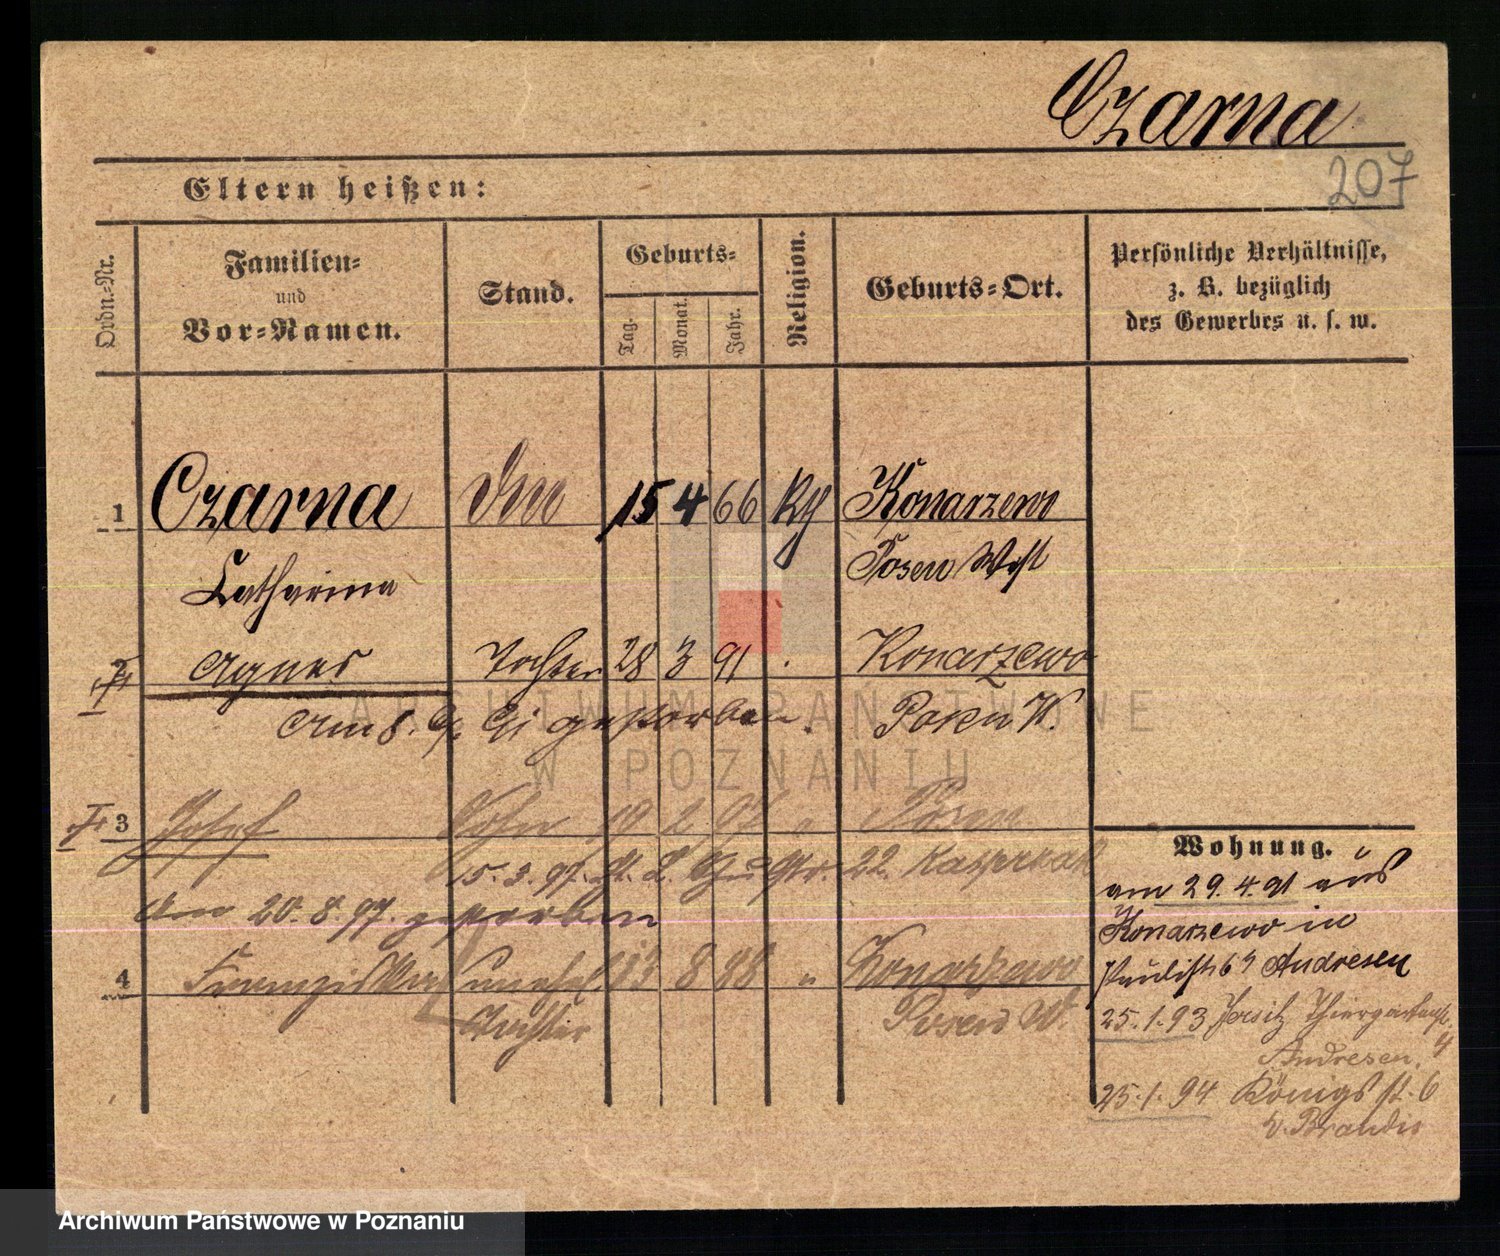 Czarna
207
Eltern heißen:
Ordn.-Nr.
Familien-
und
Vor-Namen.
Stand.
Geburts-
Tag.
Monat.
Jahr.
Religion.
Geburts-Ort.
Persönliche Verhältnisse,
z. B. bezüglich
des Gewerbes u. s. w.
1 Czarna 15 4 66 Konarzewo
Catharina Posen West
2 Agnes Tochter 28 3 91 Konarzewo
Am 8. gestorben. Posen W.
ARCHIWUM PAŃSTWOWE
W POZNANIU
3 Josef Sohn 19 2 97 " Posen
15. 3. 97. 22.
Am 20. 8. 97. gestorben
4 unehel 13 8 88 " Konarzewo
Tochter Posen W.
Wohnung.
am 29.4.91 aus
Konarzewo in
Paulist 6 Andresen
25.1.93 Jersitz Thiergartenst.
Andresen. 4
25.1.94 Königsst. 6
v. Brandis
Archiwum Państwowe w Poznaniu